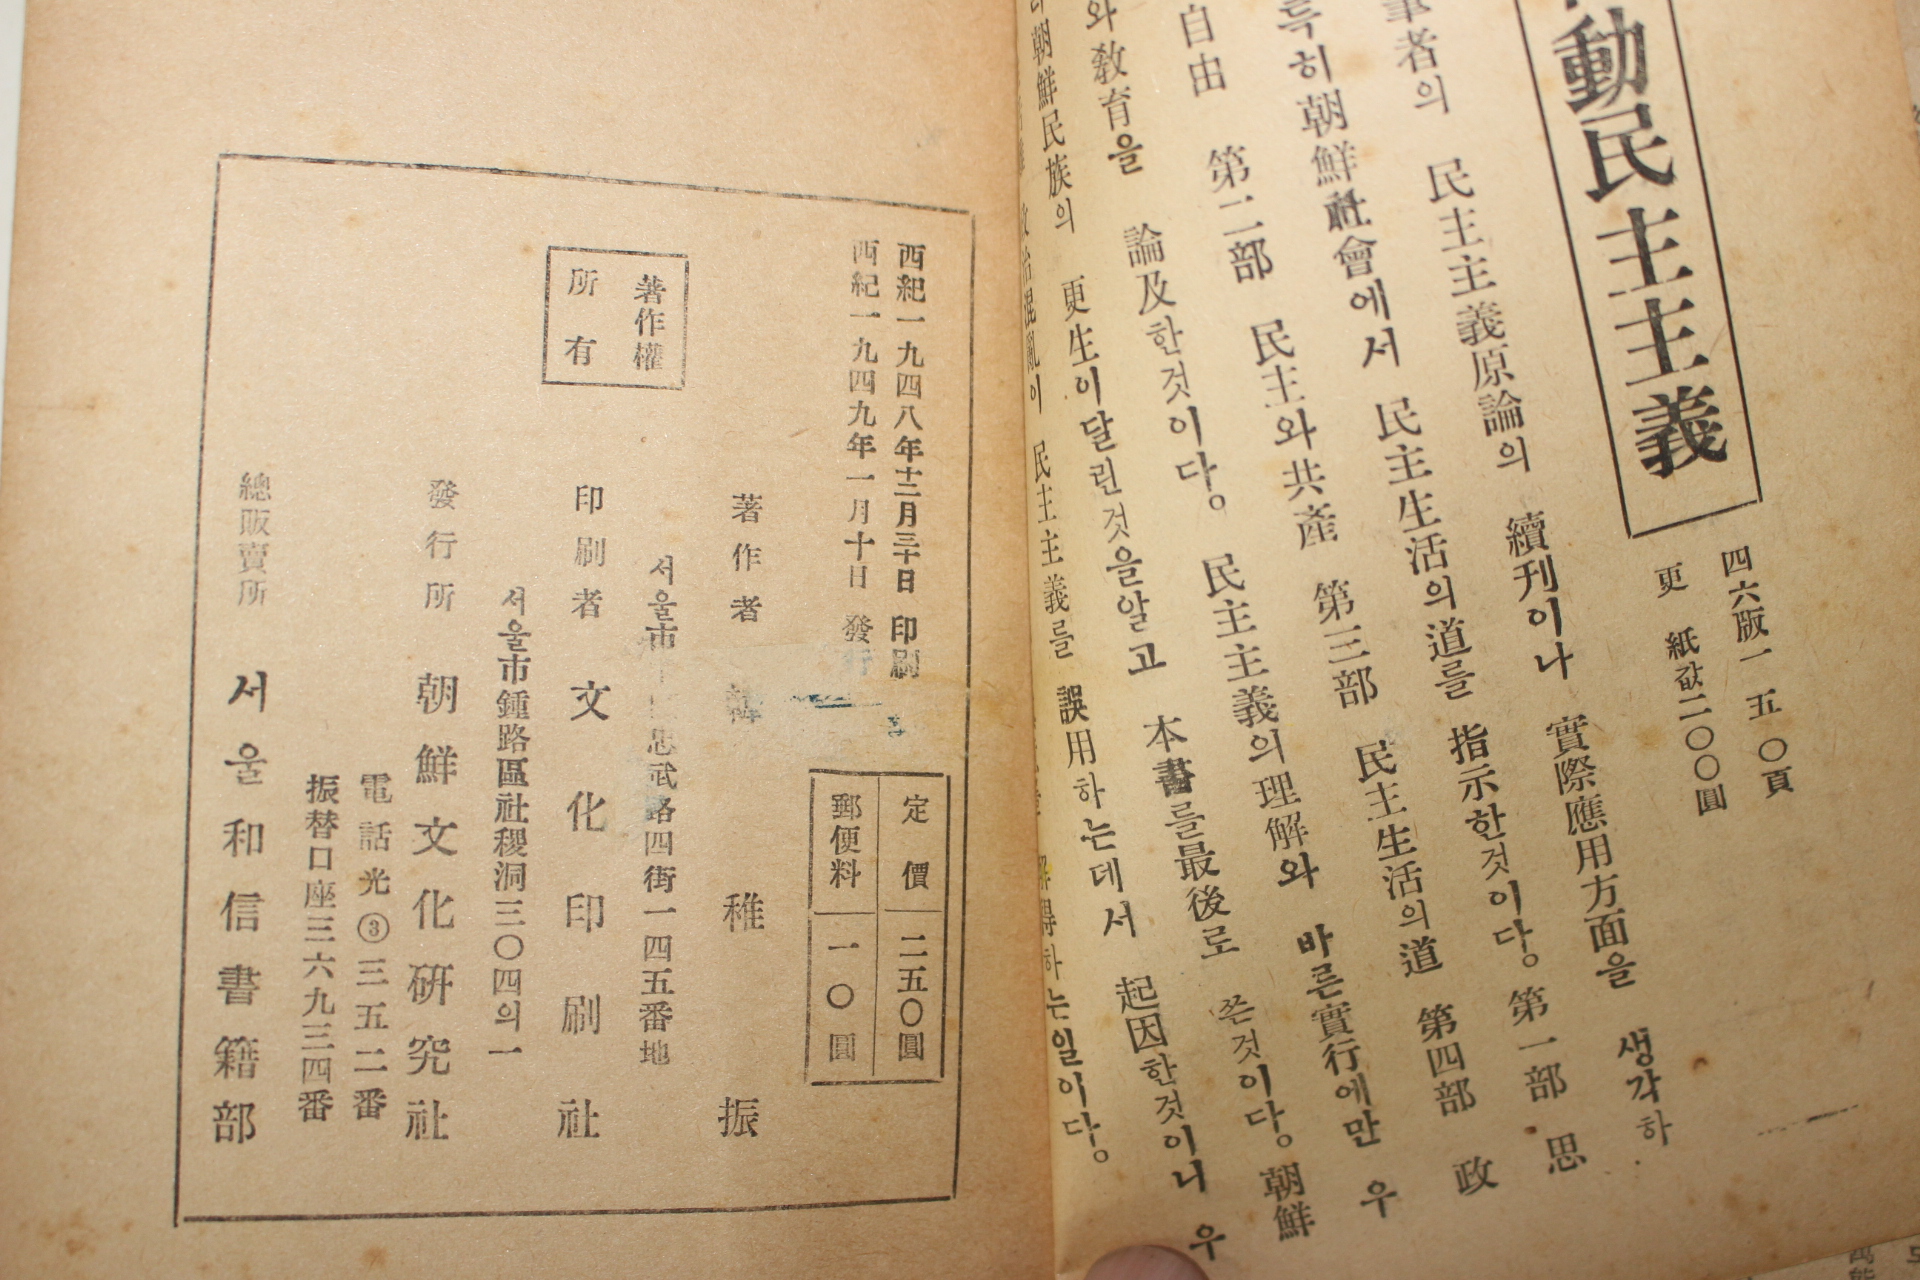 動民主主義
四六版一五〇頁
更紙값二〇〇圓
筆者의 民主主義原論의 續刊이나 實際應用方面을 생각하
특히 朝鮮社會에서 民主生活의道를 指示한것이다。第一部 思
自由 第二部 民主와共産 第三部 民主生活의道 第四部 政
와敎育을 論及한것이다。民主主義의理解와 바른實行에만 우
朝鮮民族의 更生이달린것을알고 本書를最後로 쓴것이다。朝鮮
政治混亂이 民主主義를 誤用하는데서 起因한것이니 우
解得하는일이다。
西紀一九四八年十二月三十日 印刷
西紀一九四九年一月十日 發行
定價 二五〇圓
郵便料 一〇圓
著作權
所有
著作者 韓稚振
서울市 忠武路四街一四五番地
印刷者 文化印刷社
서울市鍾路區社稷洞三〇四의一
發行所 朝鮮文化硏究社
電話光③三五二番
振替口座三六九三四番
總販賣所 서울和信書籍部